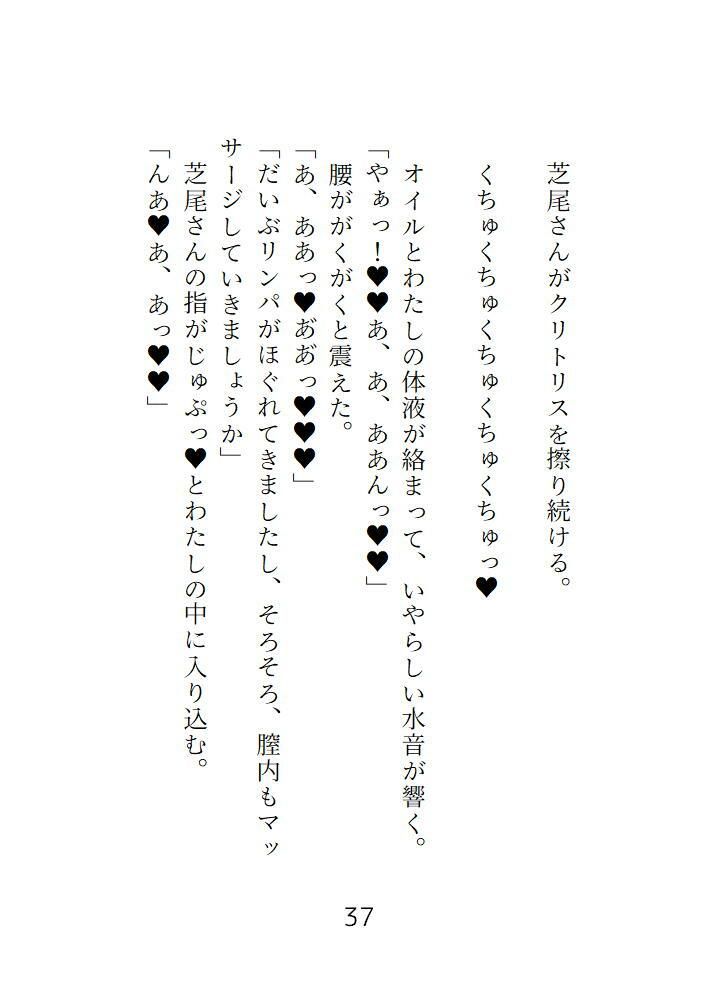 芝尾さんがクリトリスを擦り続ける。
くちゅくちゅくちゅくちゅくちゅっ♥
オイルとわたしの体液が絡まって、いやらしい水音が響く。
「やぁっ！♥♥あ、あ、ああんっ♥♥」
腰ががくがくと震えた。
「あ、ああっ♥あ゛あ゛っ♥♥♥」
「だいぶリンパがほぐれてきましたし、そろそろ、膣内もマッ
サージしていきましょうか」
芝尾さんの指がじゅぷっ♥とわたしの中に入り込む。
「んあ♥あ、あっ♥♥」
37